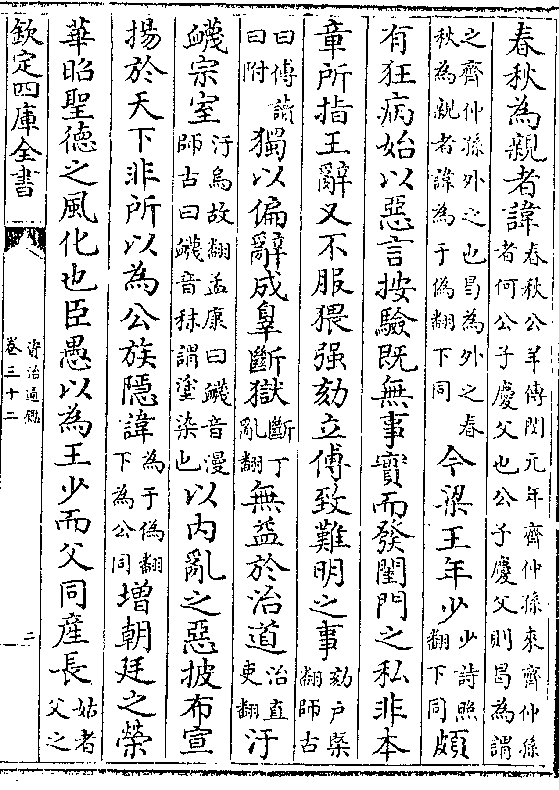 春秋為親者諱春秋公羊傳閔元年齊仲孫來齊仲孫者何公子慶父也公子慶父則曷為謂
之齊仲孫外之也曷為外之春秋為親者諱為于偽翻下同今梁王年少少詩照翻下同頗
有狂病始以惡言按驗既無事實而發閨門之私非本
章所指王辭又不服猥强劾立傅致難明之事劾戶槩翻師古
曰傅讀曰附獨以偏辭成辠斷獄斷丁亂翻無益於治道治直吏翻汙
衊宗室汙烏故翻孟康曰衊音漫師古曰衊音秣謂塗染也以内亂之惡披布宣
揚於天下非所以為公族隱諱為于偽翻下為公同增朝廷之榮
華昭聖德之風化也臣愚以為王少而父同産長姑者父之
欽定四庫全書
資治通鑑
卷三十二
二